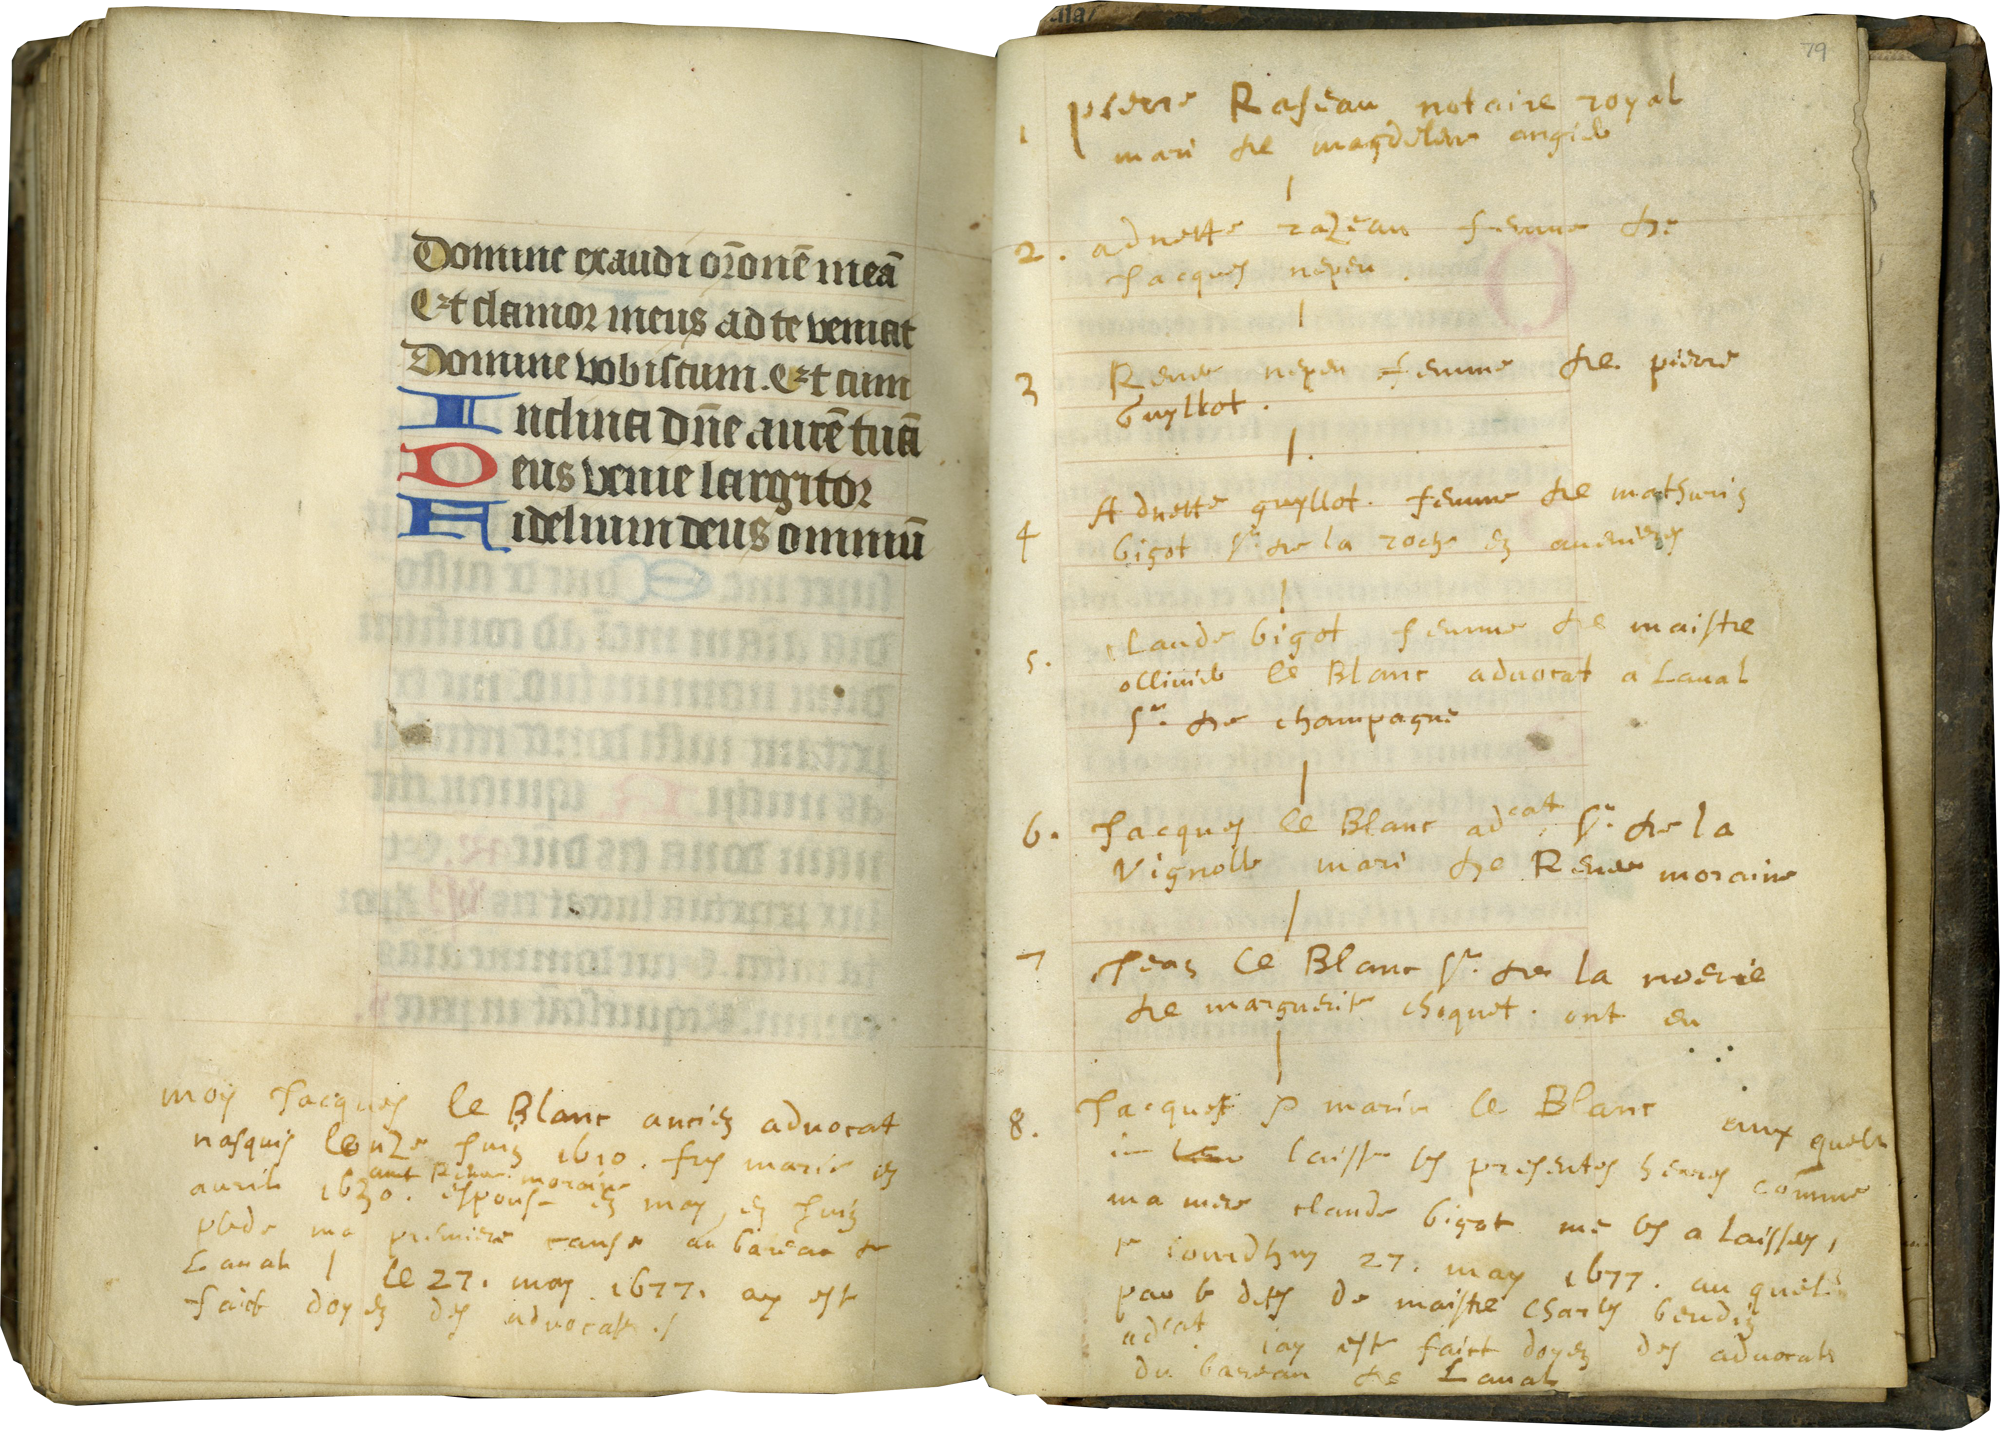 Domine exaudi or̄onē meā
Et clamor meus ad te veniat
Domine vobiscum. Et cum
Inclina dn̄e aurē tuā
Deus venie largitor
Fidelium deus omniū
moy Jacques le Blanc ancien advocat
nasquis le onze Juin 1610. fus marié en
avril 1630. espousé en may, en Juin
avec Renee moraine
plede ma premiere cause au bareau de
Laval / le 27. may 1677. ay esté
faict doyen des advocats ./
79
1 pierre Raseau notaire royal
mari de magdelene angier
2. adnette razeau femme de
Jacques nepeu.
3 Renee nepeu femme de pierre
Guyllot.
4 Adnette guyllot. femme de mathurin
bigot sr. de la roche en avenieres
5. Claude bigot femme de maistre
ollivier le Blanc advocat a Laval
sr. de champagne
6. Jacques le Blanc adcat. sr. de la
Vignolle mari de Renee moraine
7 Jean le Blanc sr. de la noerie
de marguerite choquet. ont eu
8. Jacques marie le Blanc aux quels
ie laisse les presentes heures comme
ma mere claude bigot me les a laissees,
ce iourdhuy 27. may 1677. au quel
par le deces de maistre Charles beudin
adcat. iay esté faict doyen des advocats
du bareau de Laval